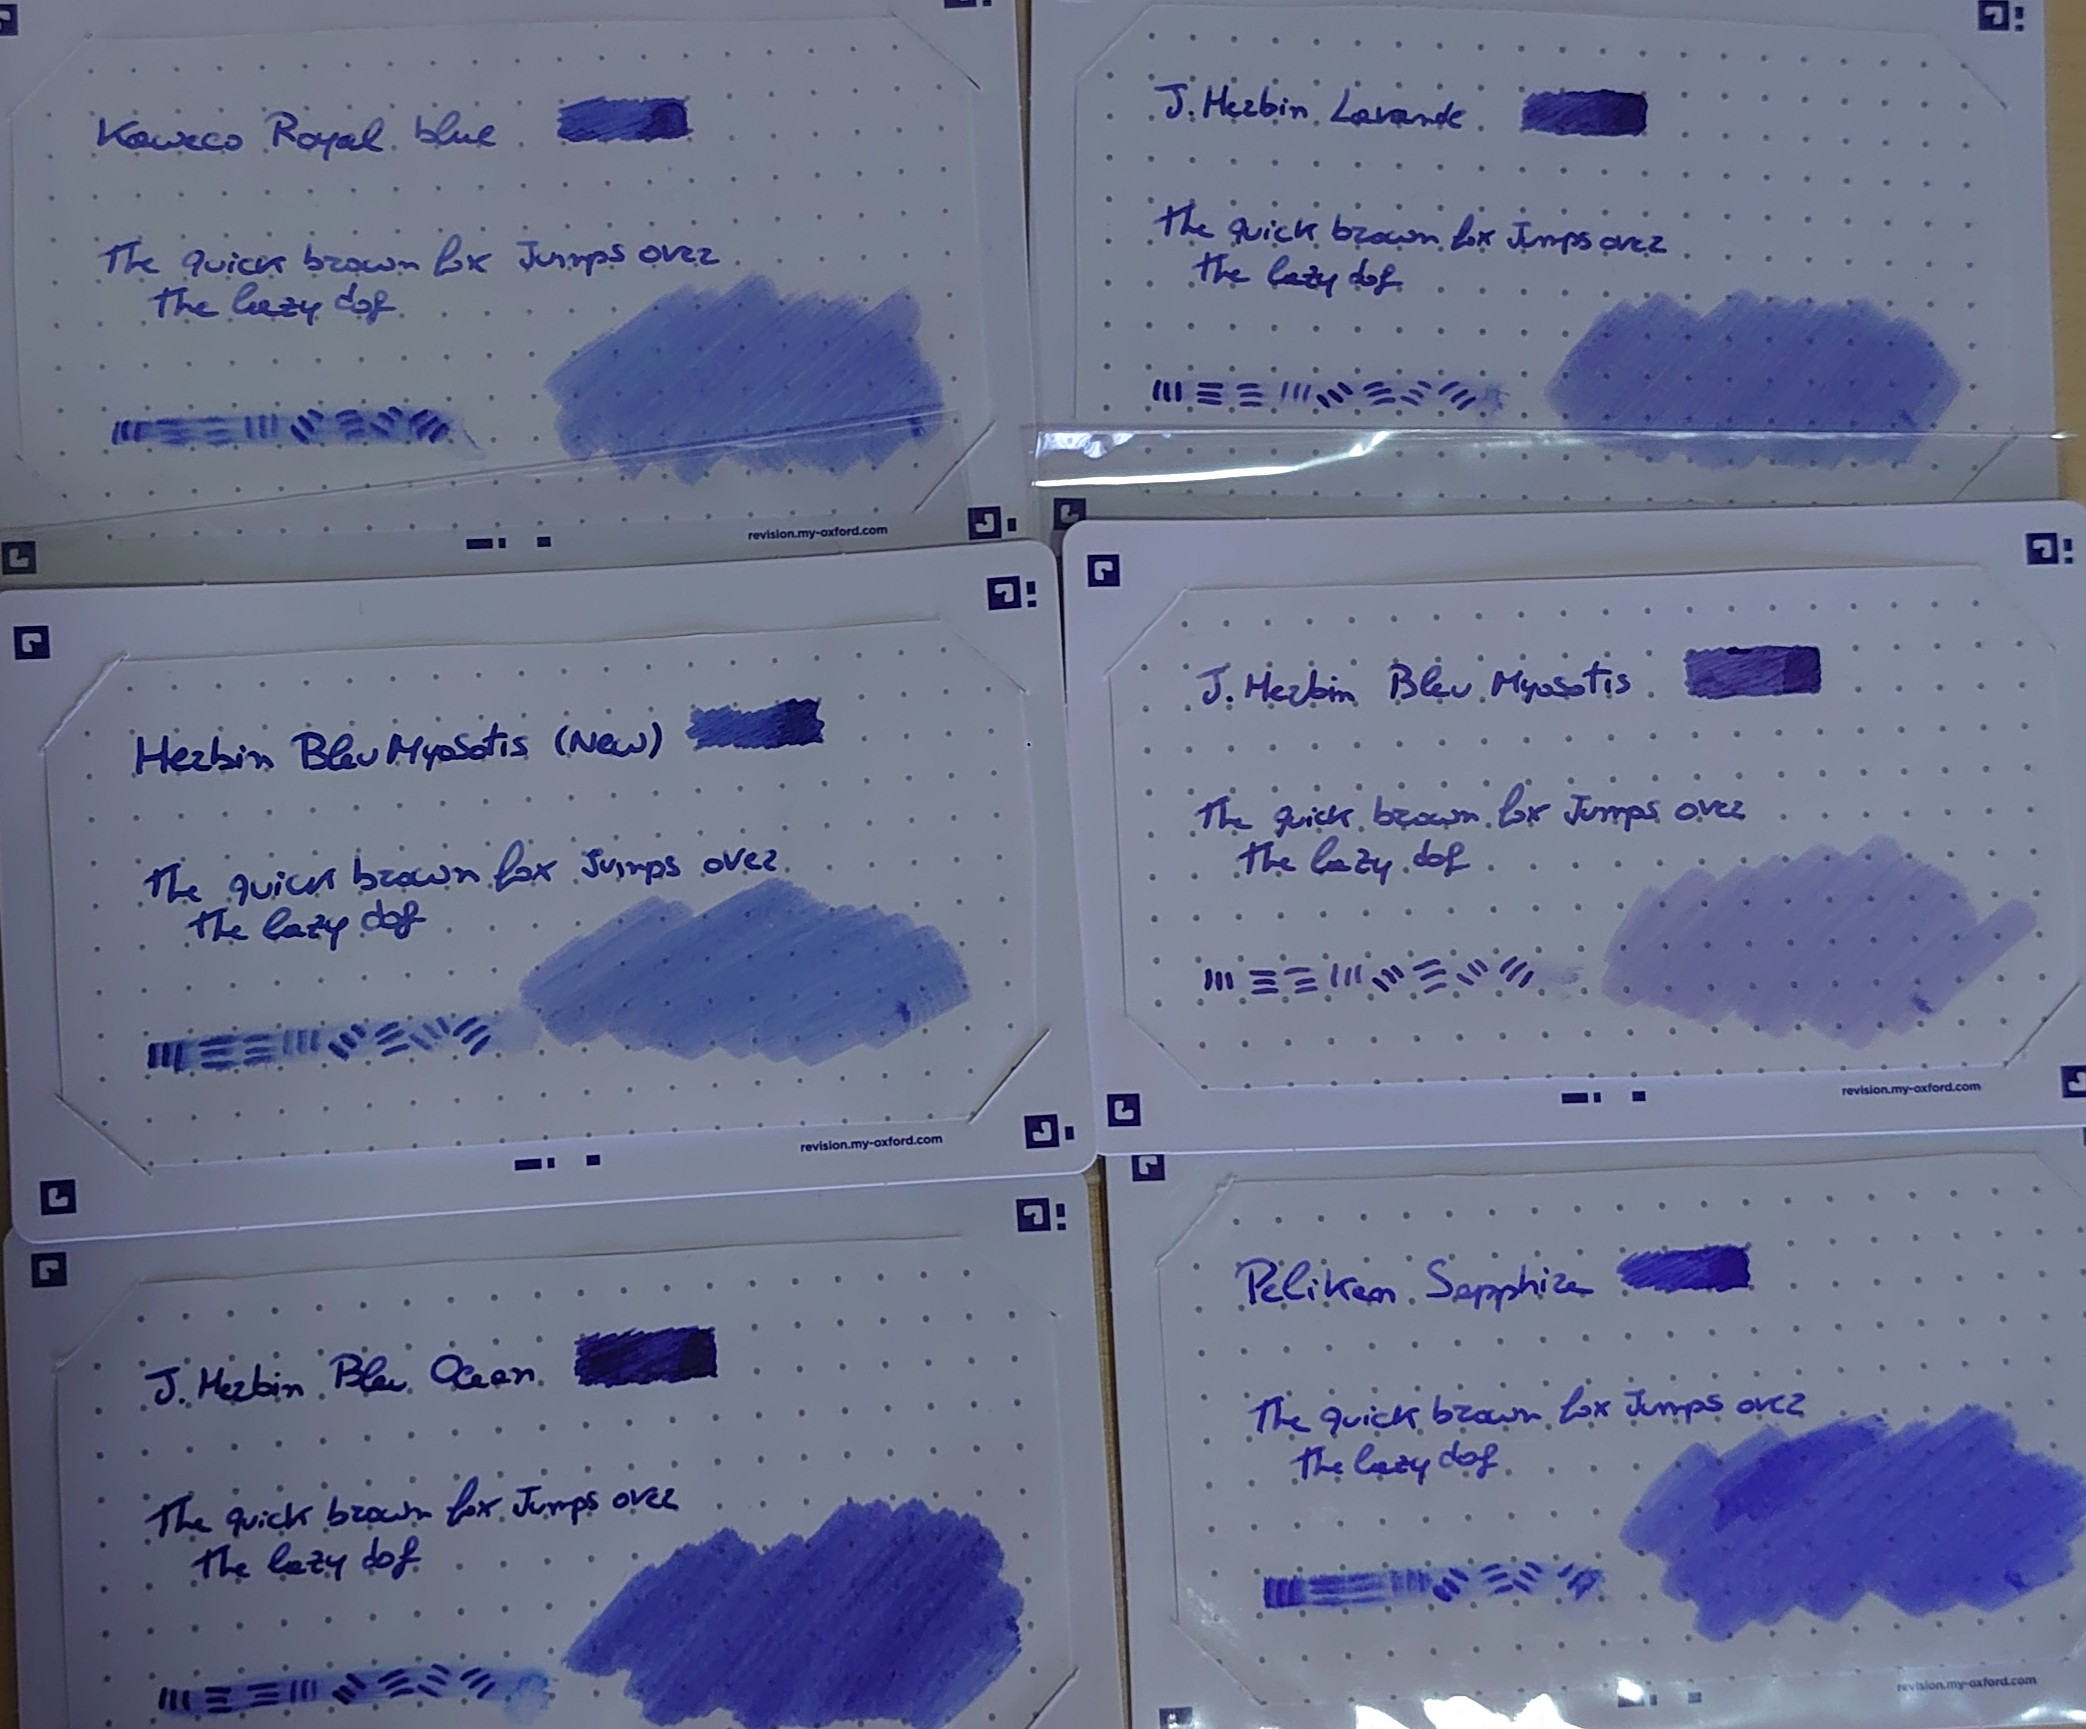 Kaweco Royal blue
The quick brown fox Jumps over
the lazy dog
revision.my-oxford.com
J. Herbin Lavande
The quick brown fox Jumps over
the lazy dog
Herbin Bleu Myosotis (New)
The quick brown fox Jumps over
the lazy dog
revision.my-oxford.com
J. Herbin Bleu Myosotis
The quick brown fox Jumps over
the lazy dog
revision.my-oxford.com
J. Herbin Bleu Ocean
The quick brown fox Jumps over
the lazy dog
Pelikan Sapphire
The quick brown fox Jumps over
the lazy dog
revision.my-oxford.com